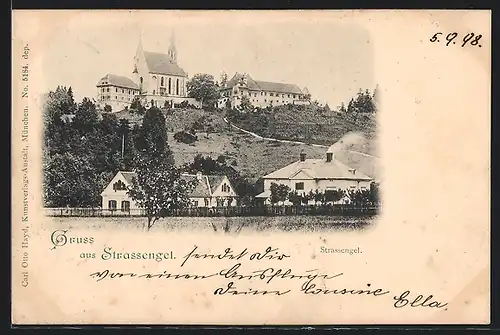 5.9.98.
Carl Otto Hayd, Kunstverlags-Anstalt, München. No. 5184. dep.
Gruss
aus Strassengel. sendet Dir
Strassengel.
von einen
Deine Cousine Ella